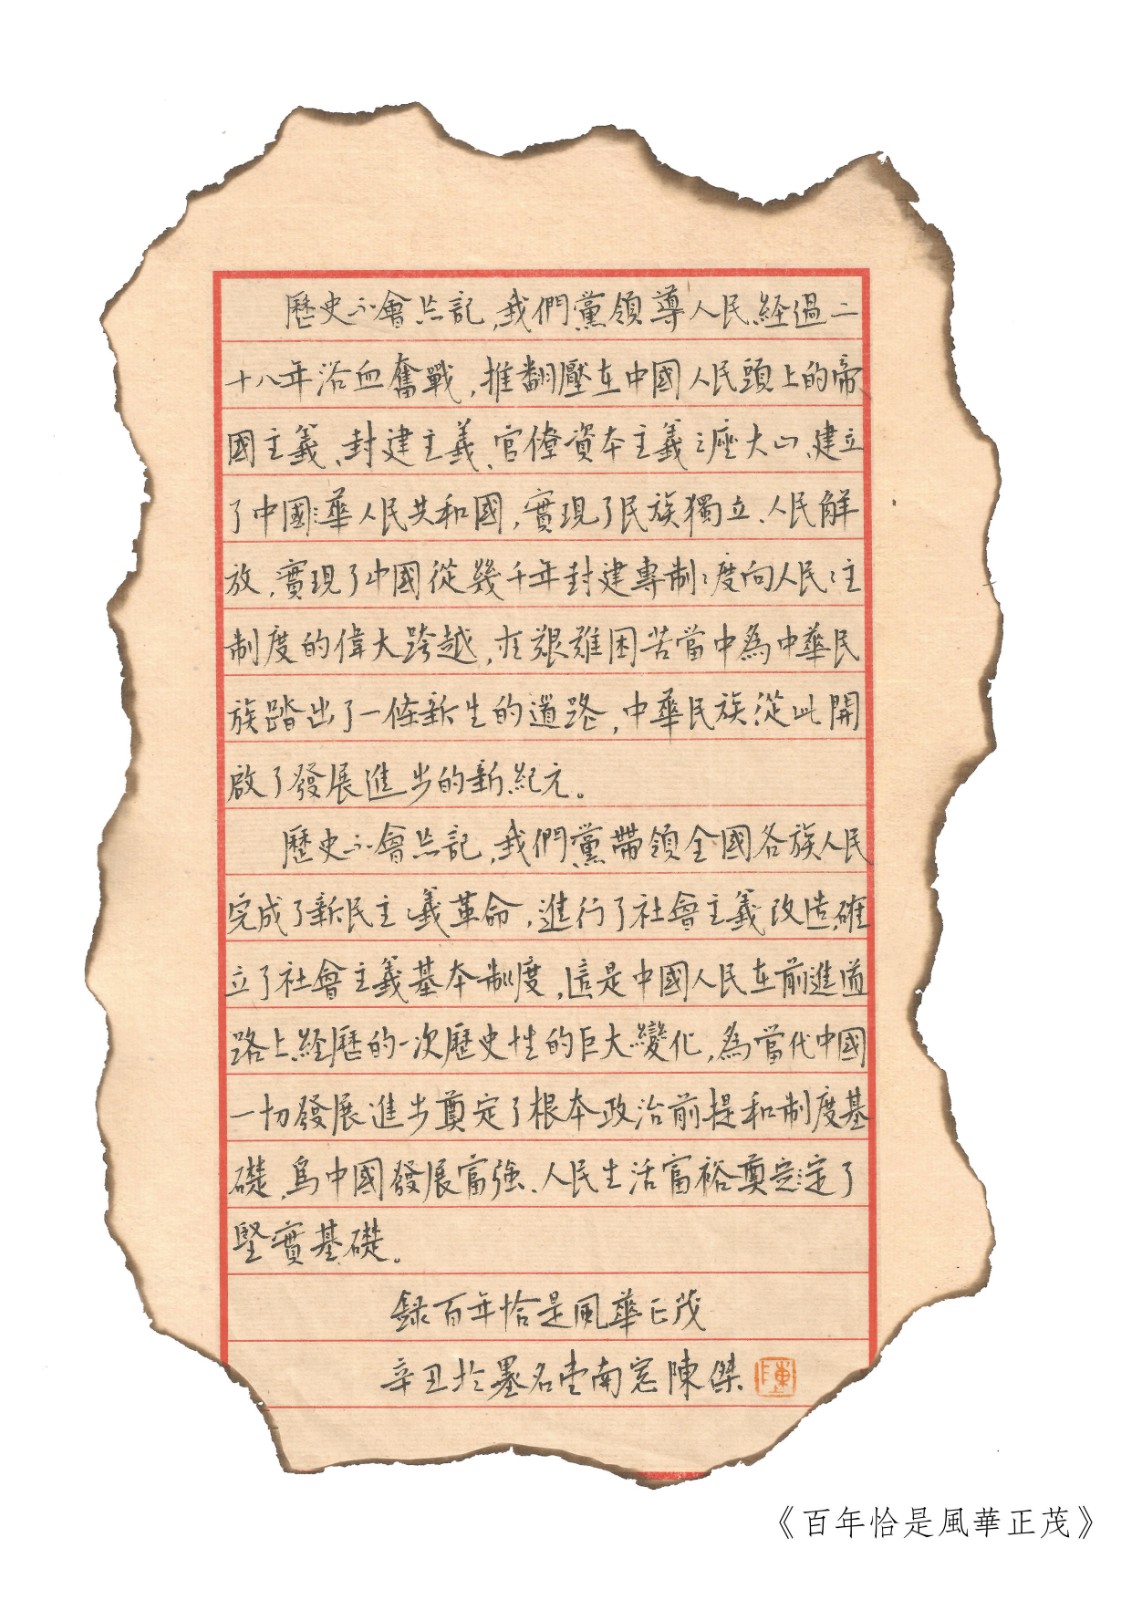 歷史不會忘記,我們黨領導人民經過二
十八年浴血奮戰,推翻壓在中國人民頭上的帝
國主義、封建主義、官僚資本主義三座大山、建立
了中國⁚華人民共和國,實現了民族獨立、人民解
放,實現了中國從幾千年封建專制⁚度向人民⁚主
制度的偉大跨越,在艱難困苦當中為中華民
族踏出了一條新生的道路,中華民族從此開
啟了發展進步的新紀元。
歷史不會忘記,我們黨帶領全國各族人民
完成了新民主義革命,進行了社會主義改造,確
立了社會主義基本制度,這是中國人民在前進道
路上經歷的一次歷史性的巨大變化,為當代中國
一切發展進步奠定了根本政治前提和制度基
礎,為中國發展富強、人民生活富裕奠定⁚定了
堅實基礎。
錄百年恰是風華正茂
辛丑於墨名堂南窓陳傑
陳
《百年恰是風華正茂》